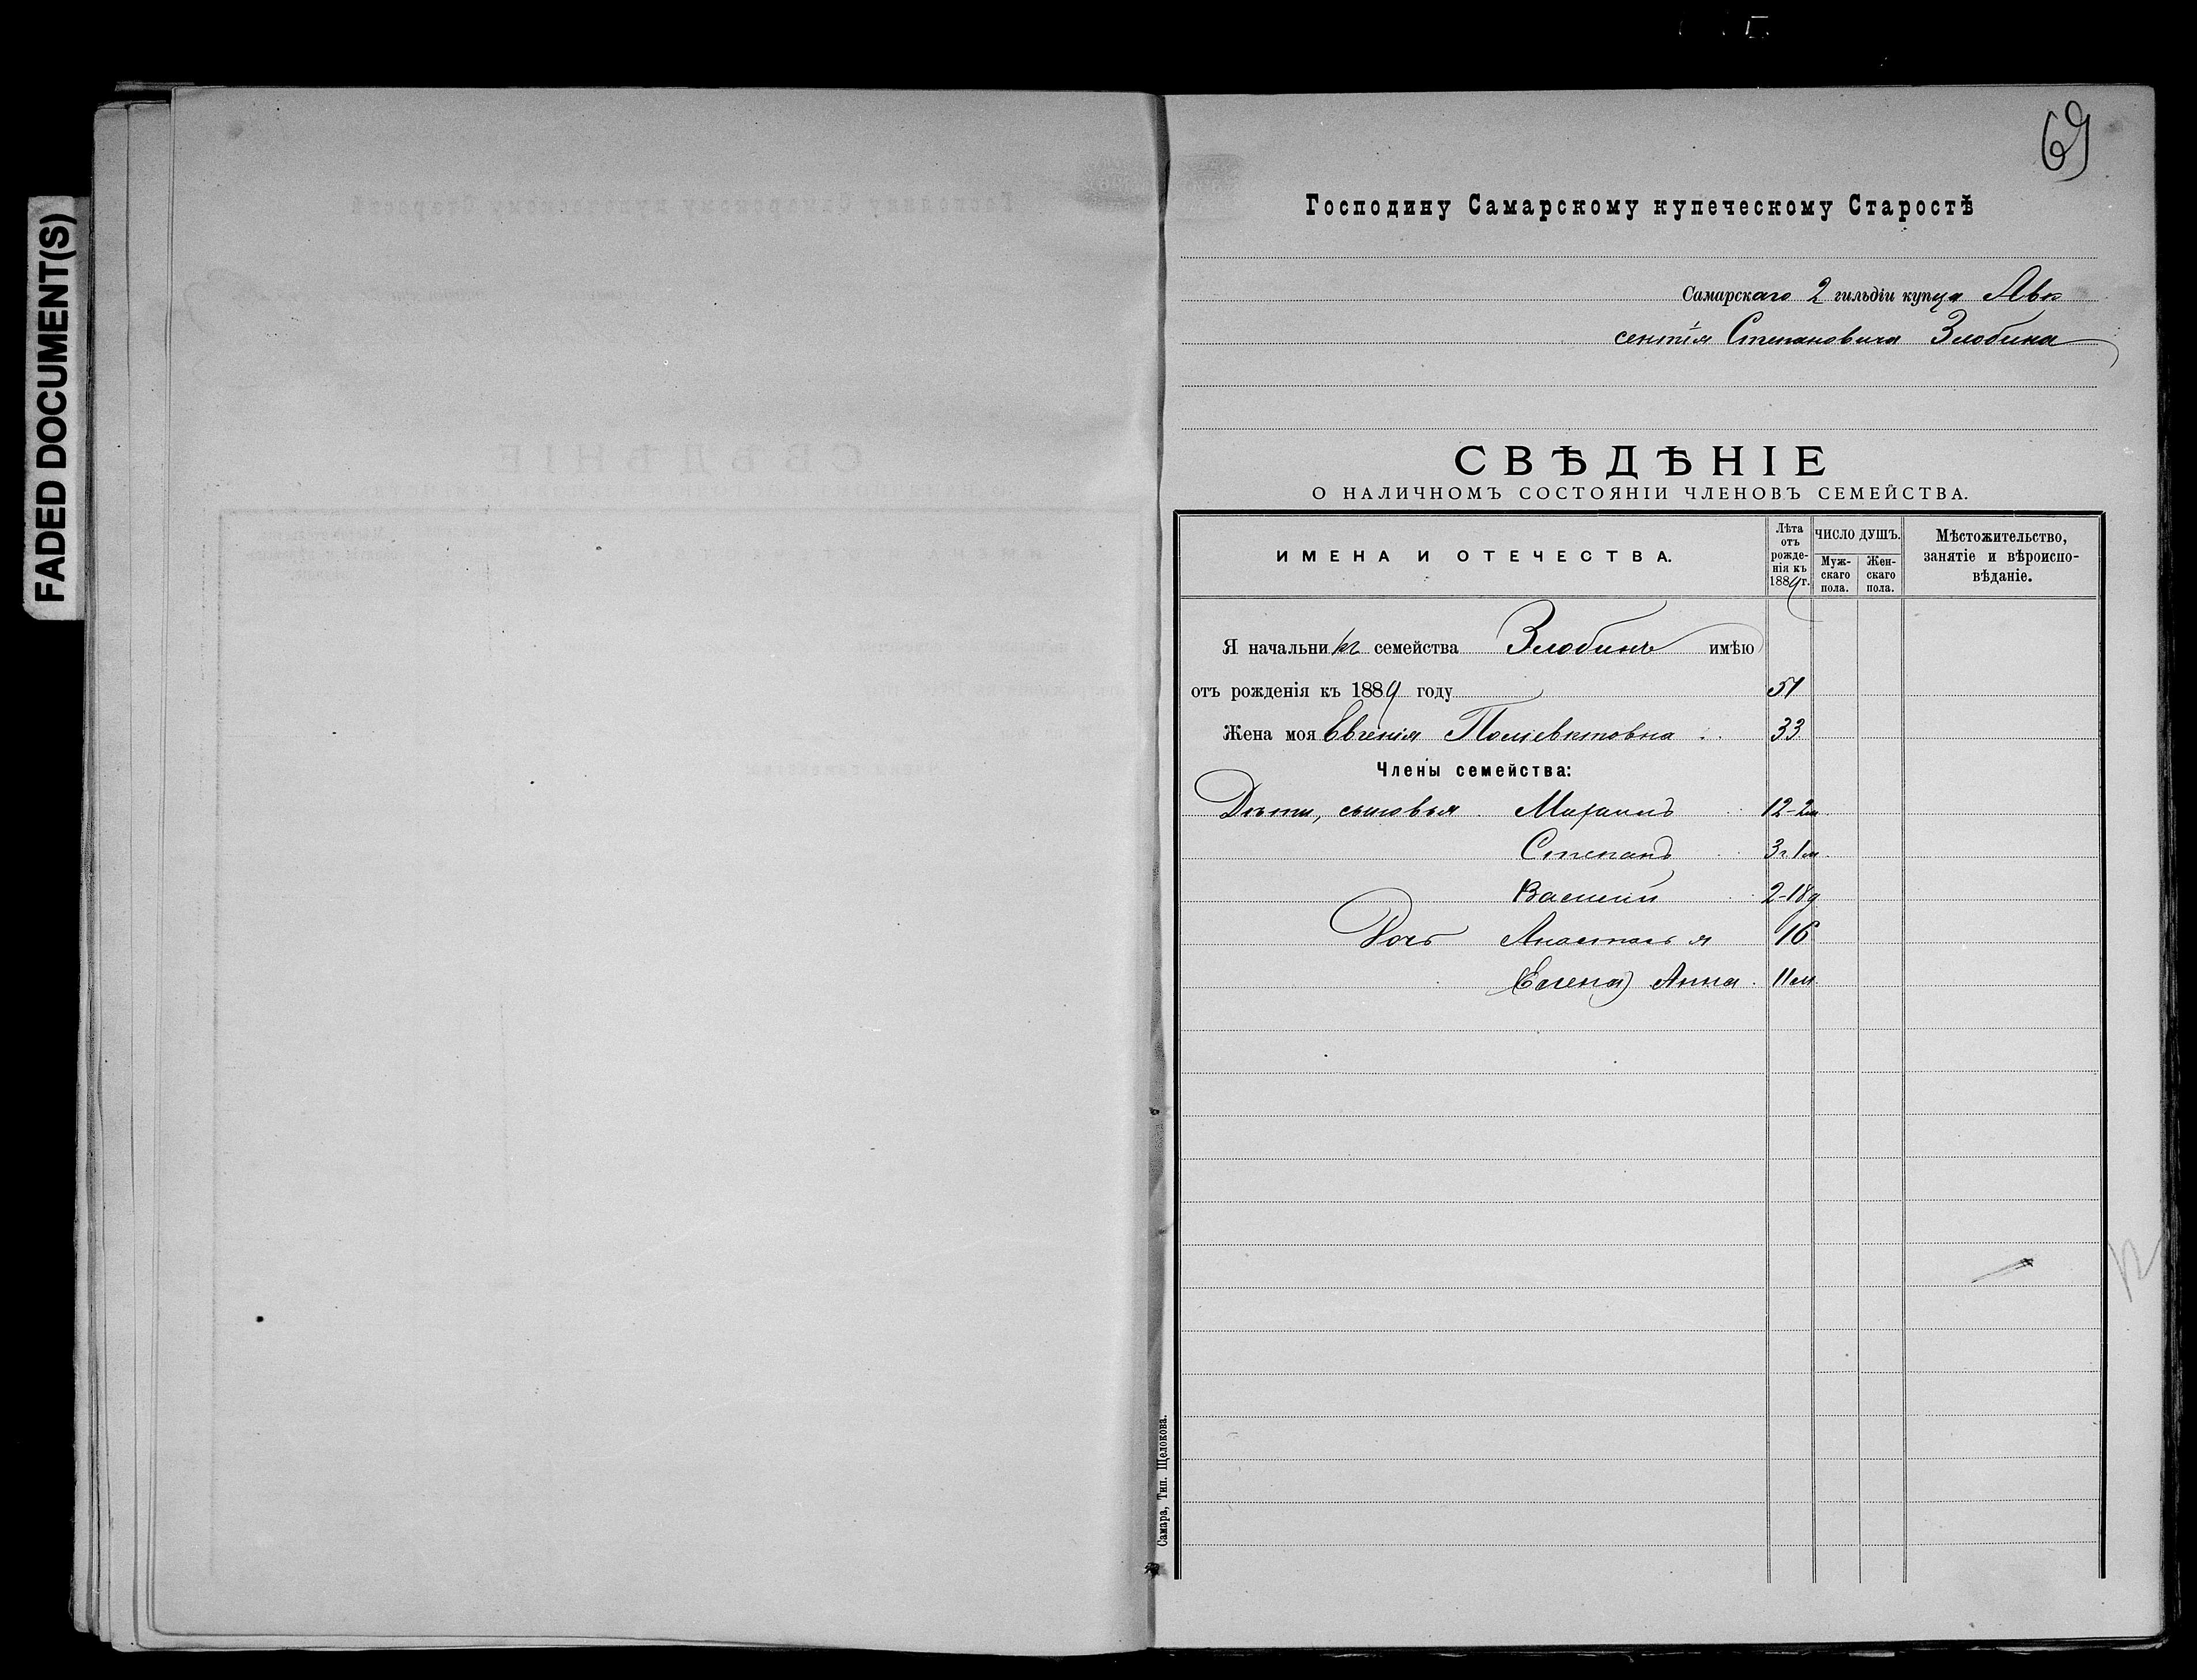 FADED DOCUMENT(S)
69
Господину Самарскому купеческому Старостѣ
Самарскаго 2 гильдіи купца Авк
сентія Степановича Злобина
СВѢДѢНІЕ
О НАЛИЧНОМЪ СОСТОЯНІИ ЧЛЕНОВЪ СЕМЕЙСТВА.
ИМЕНА И ОТЕЧЕСТВА.
Лѣта
отъ
рожде-
нія къ
1889 г.
ЧИСЛО ДУШЪ.
Муж-
скаго
пола.
Жен-
скаго
пола.
Мѣстожительство,
занятіе и вѣроиспо-
вѣданіе.
Я начальникъ семейства Злобинъ имѣю
отъ рожденія къ 1889 году 51
Жена моя Евгенія Поліевктовна 33
Члены семейства:
Дѣти, сыновья Михаилъ 12-2м
Степанъ 3г 1м.
Василій 2-18д
Дочь Анастасья 16
(Елена) Анна 11м
Самара, Тип. Щелокова.